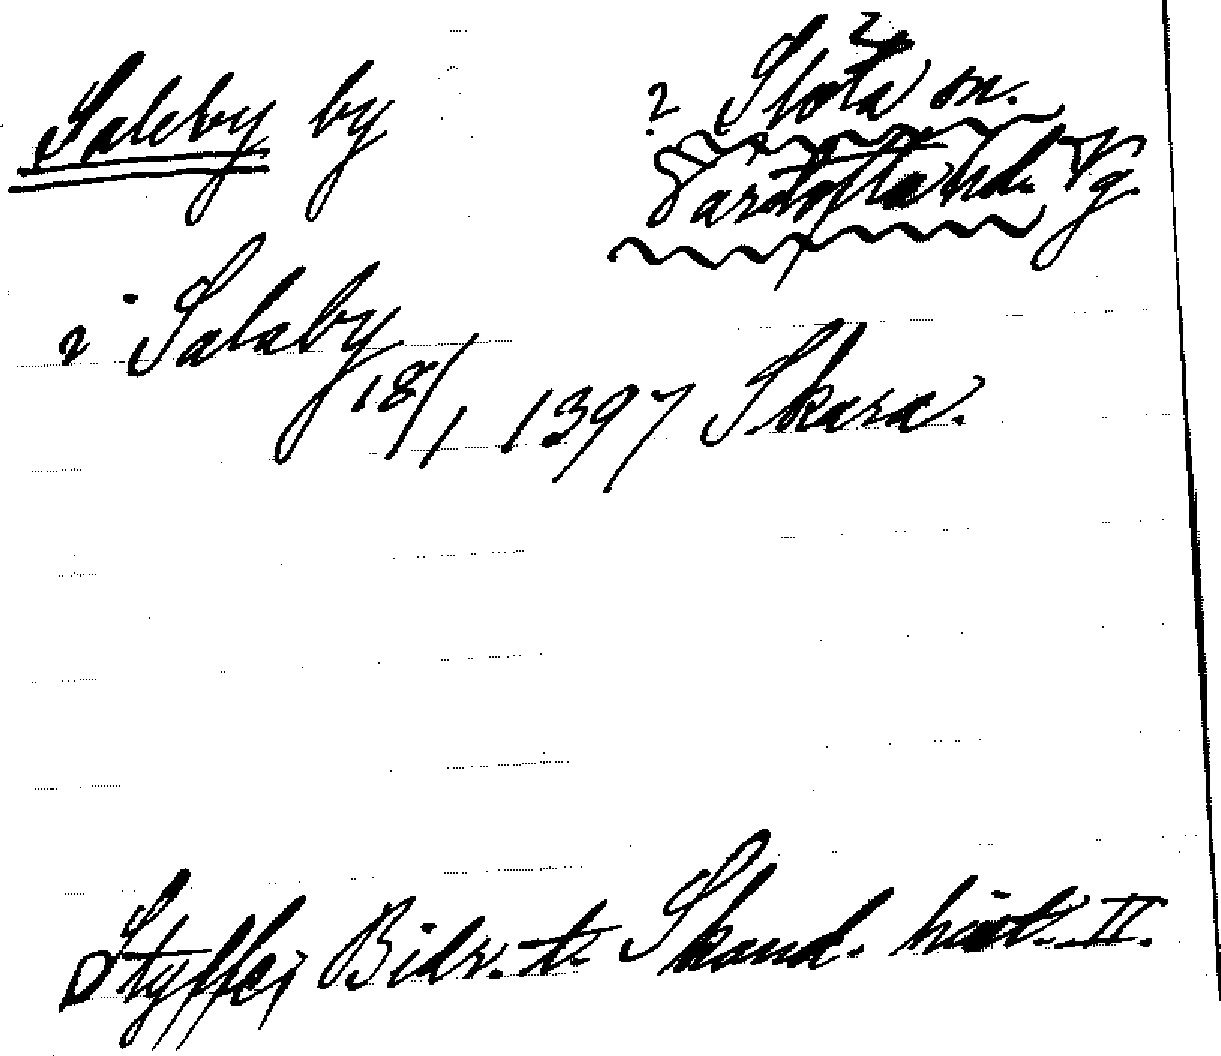 Saleby by
? Slöta sn.
Vartofta hd. Vg.
i Salaby
18/1 1397 Skara.
Styffe, Bidr. t. Skand. hist. II.